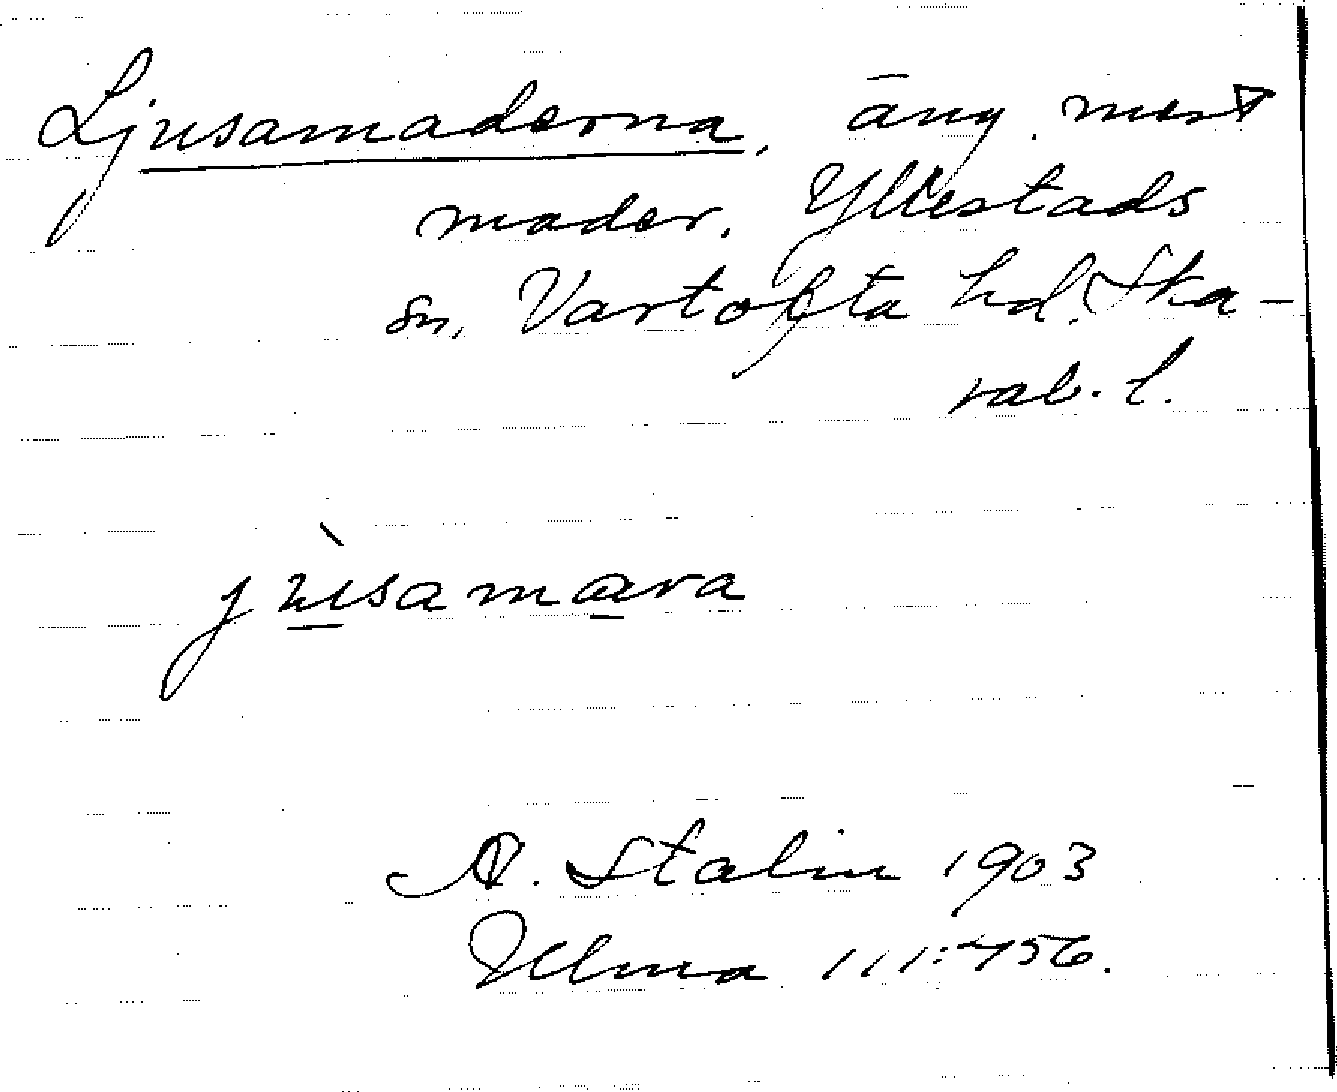 Ljusamaderna, äng mest
mader. Yllestads
sn. Vartofta hd. Ska-
rab. l.
jùsamara
A. Stalin 1903
Ulma 111:456.